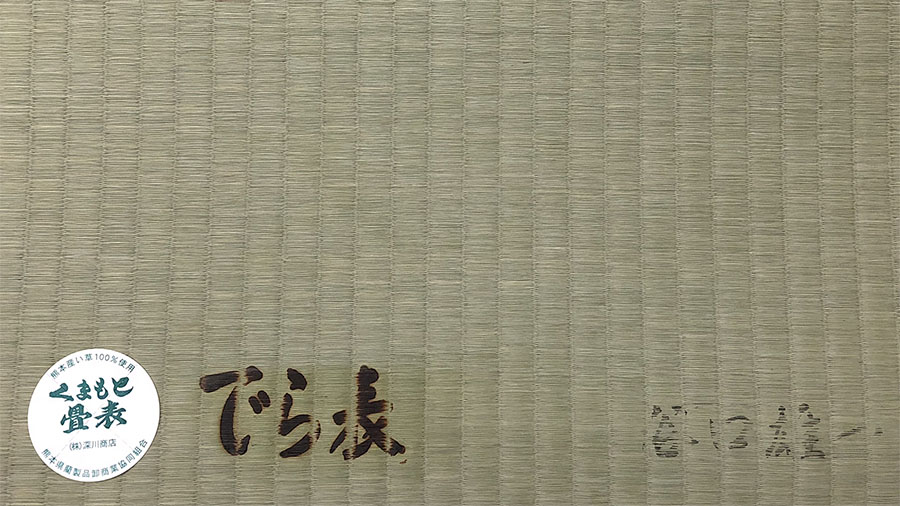 熊本産い草100%使用
くまもと
畳表
(株)深川商店
熊本県藺製品卸商業協同組合
でら表